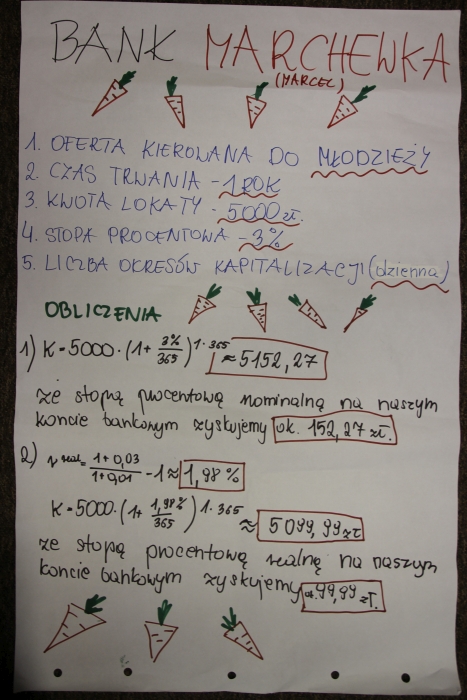 BANK MARCHEWKA
(MARCEL)
1. OFERTA KIEROWANA DO MŁODZIEŻY
2. CZAS TRWANIA - 1 ROK
3. KWOTA LOKATY - 5000 zł.
4. STOPA PROCENTOWA - 3%
5. LICZBA OKRESÓW KAPITALIZACJI (dzienna)
OBLICZENIA
1) K = 5000 · (1 + 3%/365)^1·365 ≈ 5152,27
ze stopą procentową nominalną na naszym
koncie bankowym zyskujemy ok. 152,27 zł.
2) r real = 1+0,03/1+0,01 - 1 ≈ 1,98%
K = 5000 · (1 + 1,98%/365)^1·365 ≈ 5099,99 zł
ze stopą procentową realną na naszym
koncie bankowym zyskujemy ok. 99,99 zł.